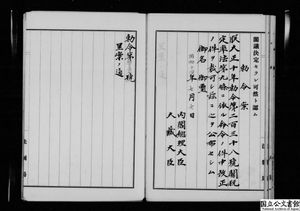 閣議決定セラレ可然ト認ム
勅令案
朕大正十年勅令第二百三十八號關税
定率法第九條ニ依ル命令ノ件中改正
ノ件ヲ裁可シ茲ニ之ヲ公布セシム
御名 御璽
年七月七日
内閣總理大臣
大藏大臣
勅令第 號
里案ノ通
国立公文書館
National Archives of Japan